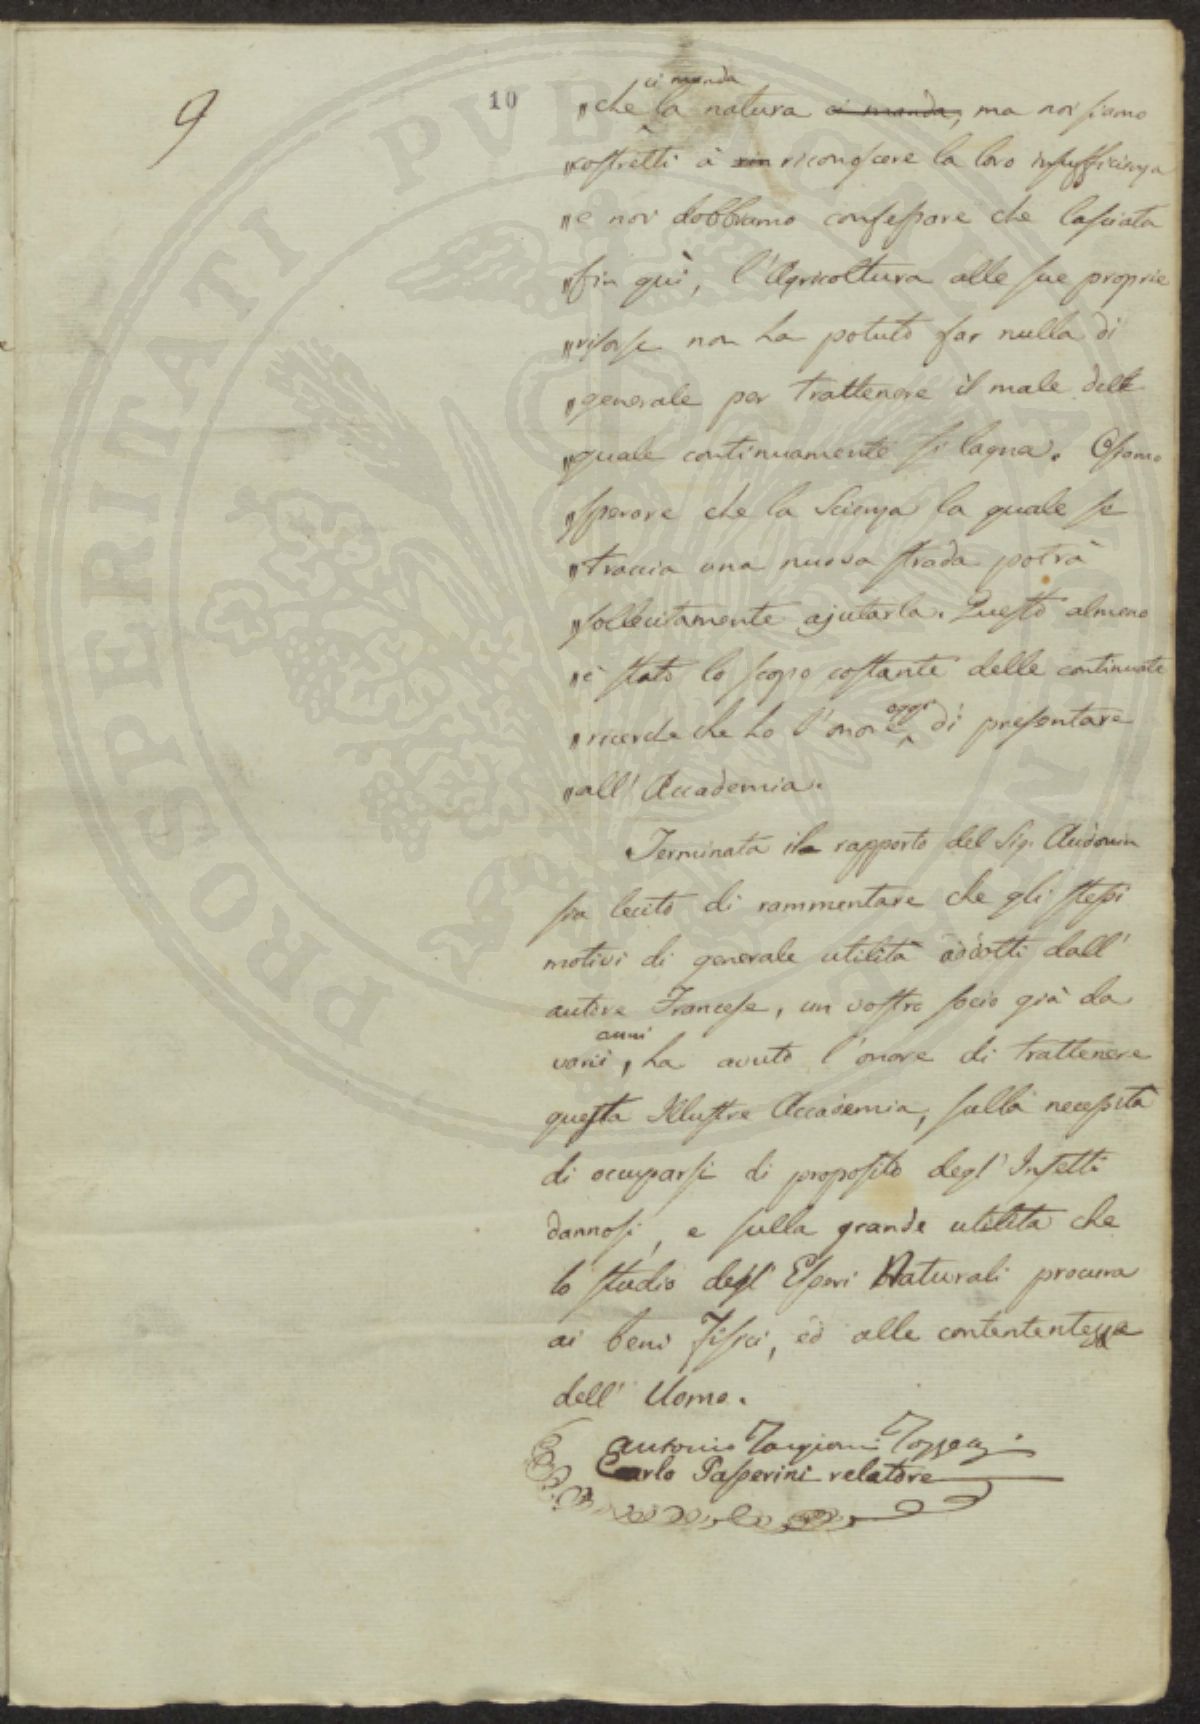 9
10
ci manda
„che la natura ci manda, ma noi siamo
„costretti a rin riconoscere la loro insufficienza
„e noi dobbiamo confessare che lasciata
„fin quì, l'Agricoltura alle sue proprie
„risorse non ha potuto far nulla di
„generale per trattenere il male delle
„quale continuamente si lagna. Osiamo
„sperare che la Scienza la quale se
„traccia una nuova strada potrà
„sollecitamente ajutarla. Questo almeno
„è stato lo scopo costante delle continuate
oggi
„ricerche che ho l'onore di presentare
„all'Accademia.
Terminata il rapporto del Sig. Audouin
sia lecito di rammentare che gli stessi
motivi di generale utilità addotti dall'
autore Francese, un vostro socio già da
anni
varii, ha avuto l'onore di trattenere
questa Illustre Accademia, sulla necessità
di occuparsi di proposito degl'Insetti
dannosi, e sulla grande utilità che
lo studio degl'Esseri Naturali procura
ai beni Fisici, ed alle contententezza
dell'Uomo.
Antonio Targioni Tozzetti
Carlo Passerini relatore
PROSPERITATI PUBLICAE